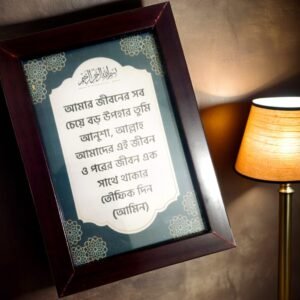 بسم الله الرحمن الرحيم
আমার জীবনের সব
চেয়ে বড় উপহার তুমি
আনুশা, আল্লাহ
আমাদের এই জীবন
ও পরের জীবন এক
সাথে থাকার
তৌফিক দিন
(আমিন)